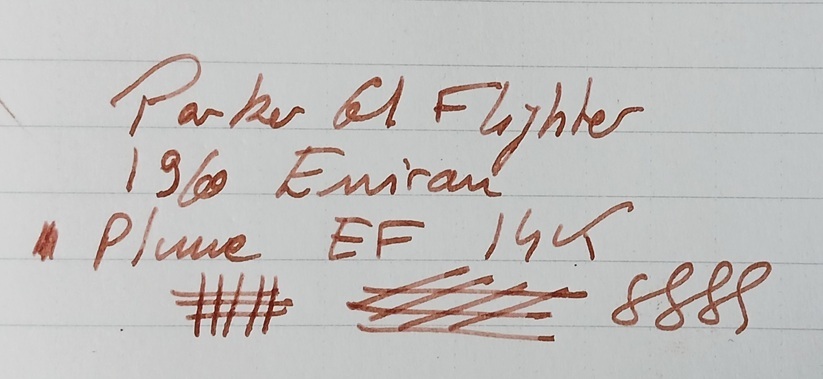 Parker 61 Flighter
1960 Environ
Plume EF 14K
8888